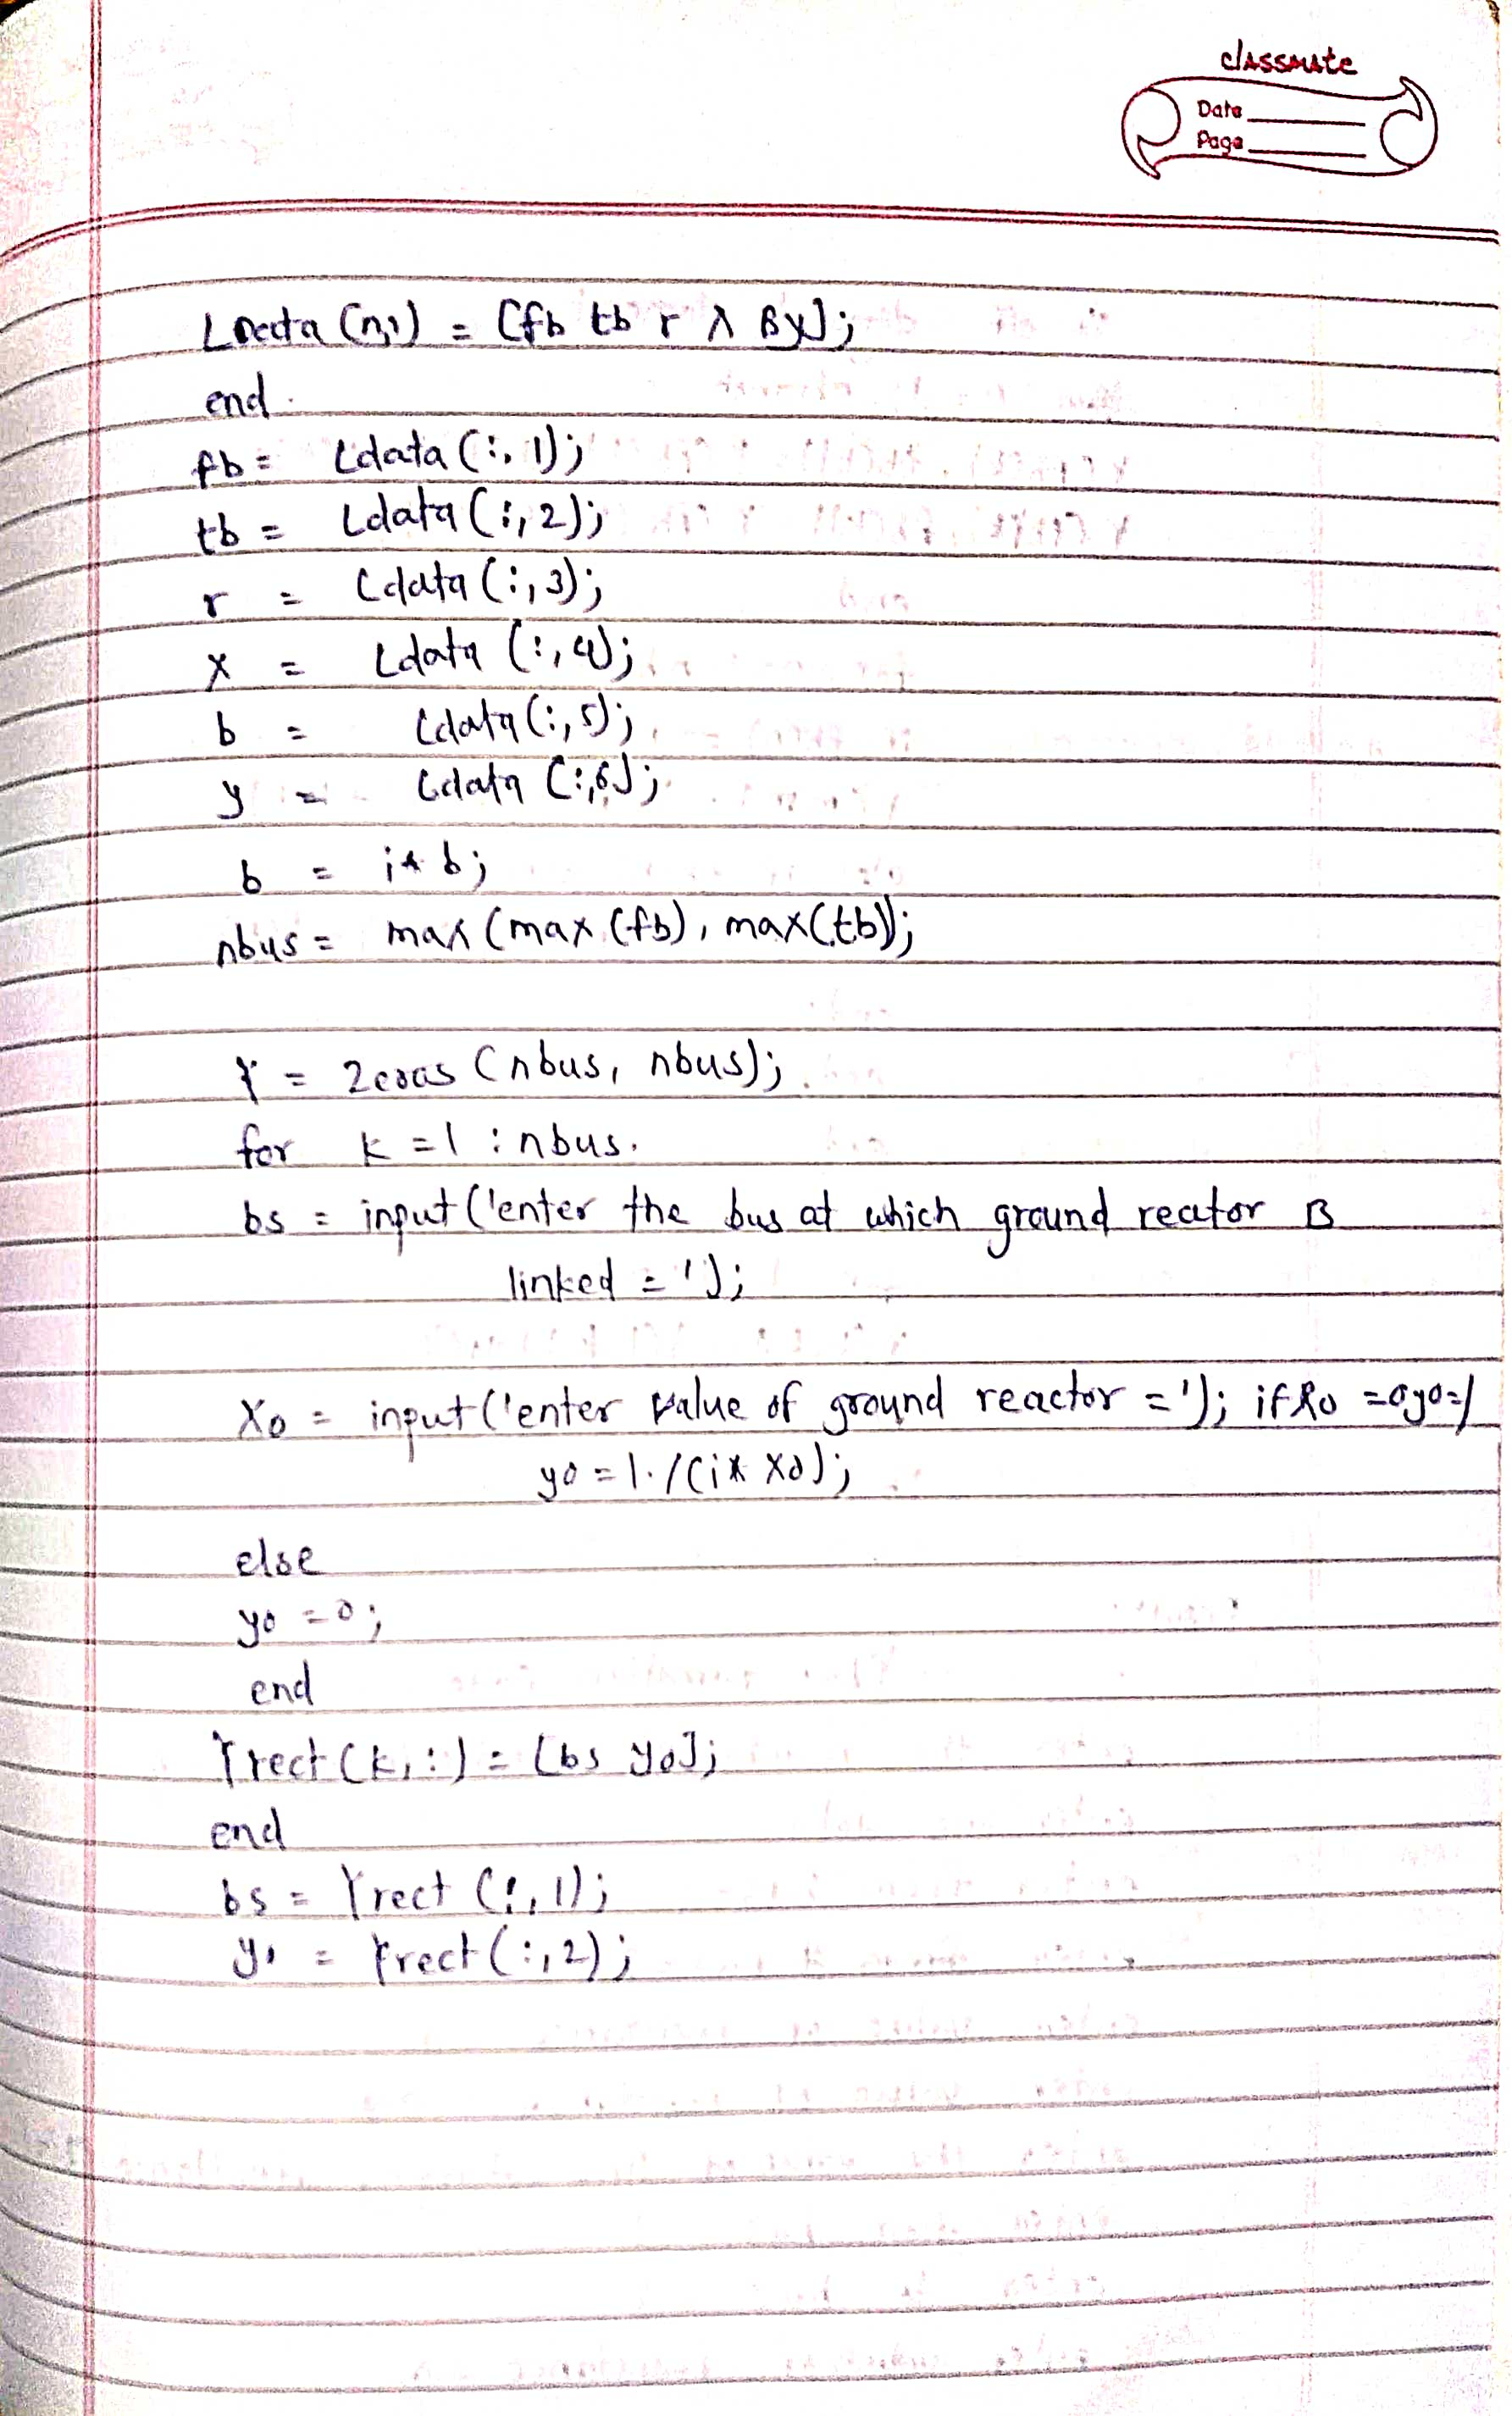 classmate
Date
Page
Ldata (n,:) = [fb tb r x B y];
end
fb = Ldata (:, 1);
tb = Ldata (:, 2);
r = Ldata (:, 3);
x = Ldata (:, 4);
b = Ldata (:, 5);
y = Ldata (:, 6);
b = i* b;
nbus = max (max (fb), max(tb));
Y = zeros (nbus, nbus);
for k = 1 : nbus.
bs = input ('enter the bus at which ground reator B
linked = ');
Xo = input ('enter value of ground reactor = '); if
yo = 1./(i* Xo);
else
yo = 0;
end
Yrect (k, :) = [bs yo];
end
bs = Yrect (:, 1);
yo = Yrect (:, 2);